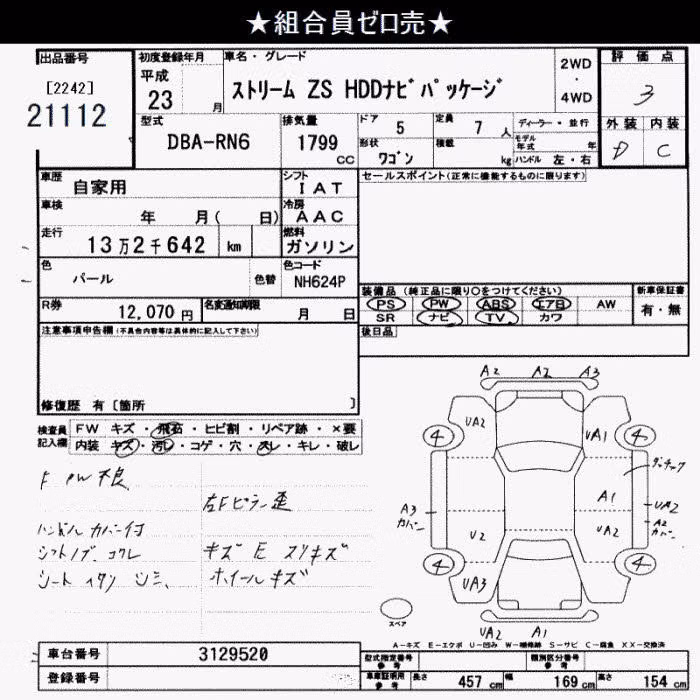 ★組合員ゼロ売★
出品番号
[2242]
21112
初度登録年月
平成
23 月
車名・グレード
ストリーム ZS HDDナビパッケージ
2WD
・
4WD
評価点
3
外装 内装
D C
型式
DBA-RN6
排気量
1799
CC
ドア 5
定員 7 人
形状 ワゴン
積載 kg
ディーラー・並行
モデル年式 年
ハンドル 左・右
車歴 自家用
車検 年 月( 日)
走行 13万2千642 km
色 パール
色替
シフト IAT
冷房 AAC
燃料 ガソリン
色コード NH624P
R券 12,070円
名変通知期限 月 日
セールスポイント(正常に機能するものに限ります)
装備品(純正品に限り○をつけてください)
PS PW ABS エアB AW
SR ナビ TV カワ
新車保証書
有・無
後日品
注意事項申告欄(不具合内容等は具体的に記入して下さい)
修復歴 有[箇所 ]
検査員記入欄
FW キズ・飛石・ヒビ割・リペア跡・×要
内装 キズ・汚レ・コゲ・穴・スレ・キレ・破レ
F PW不良
左Fピラー歪
ハンドルカバー付
シフトノブ コワレ
キズ E スリキズ
シート イタミ シミ、
ホイールキズ
A2 A2 A3
UA2 UA1
4 4
ダッチャク
A3
カバー
A1
UA2
A2
カバー
U2 UA2
4 4
UA3
UA2 A1
スペア
A-キズ E-エクボ U-凹み W-補修跡 S-サビ C-腐食 XX-交換済
車台番号 3129520
登録番号
型式指定番号
参考
類別区分番号
参考
車車証明用
参考
長さ 457 cm
幅 169 cm
高さ 154 cm